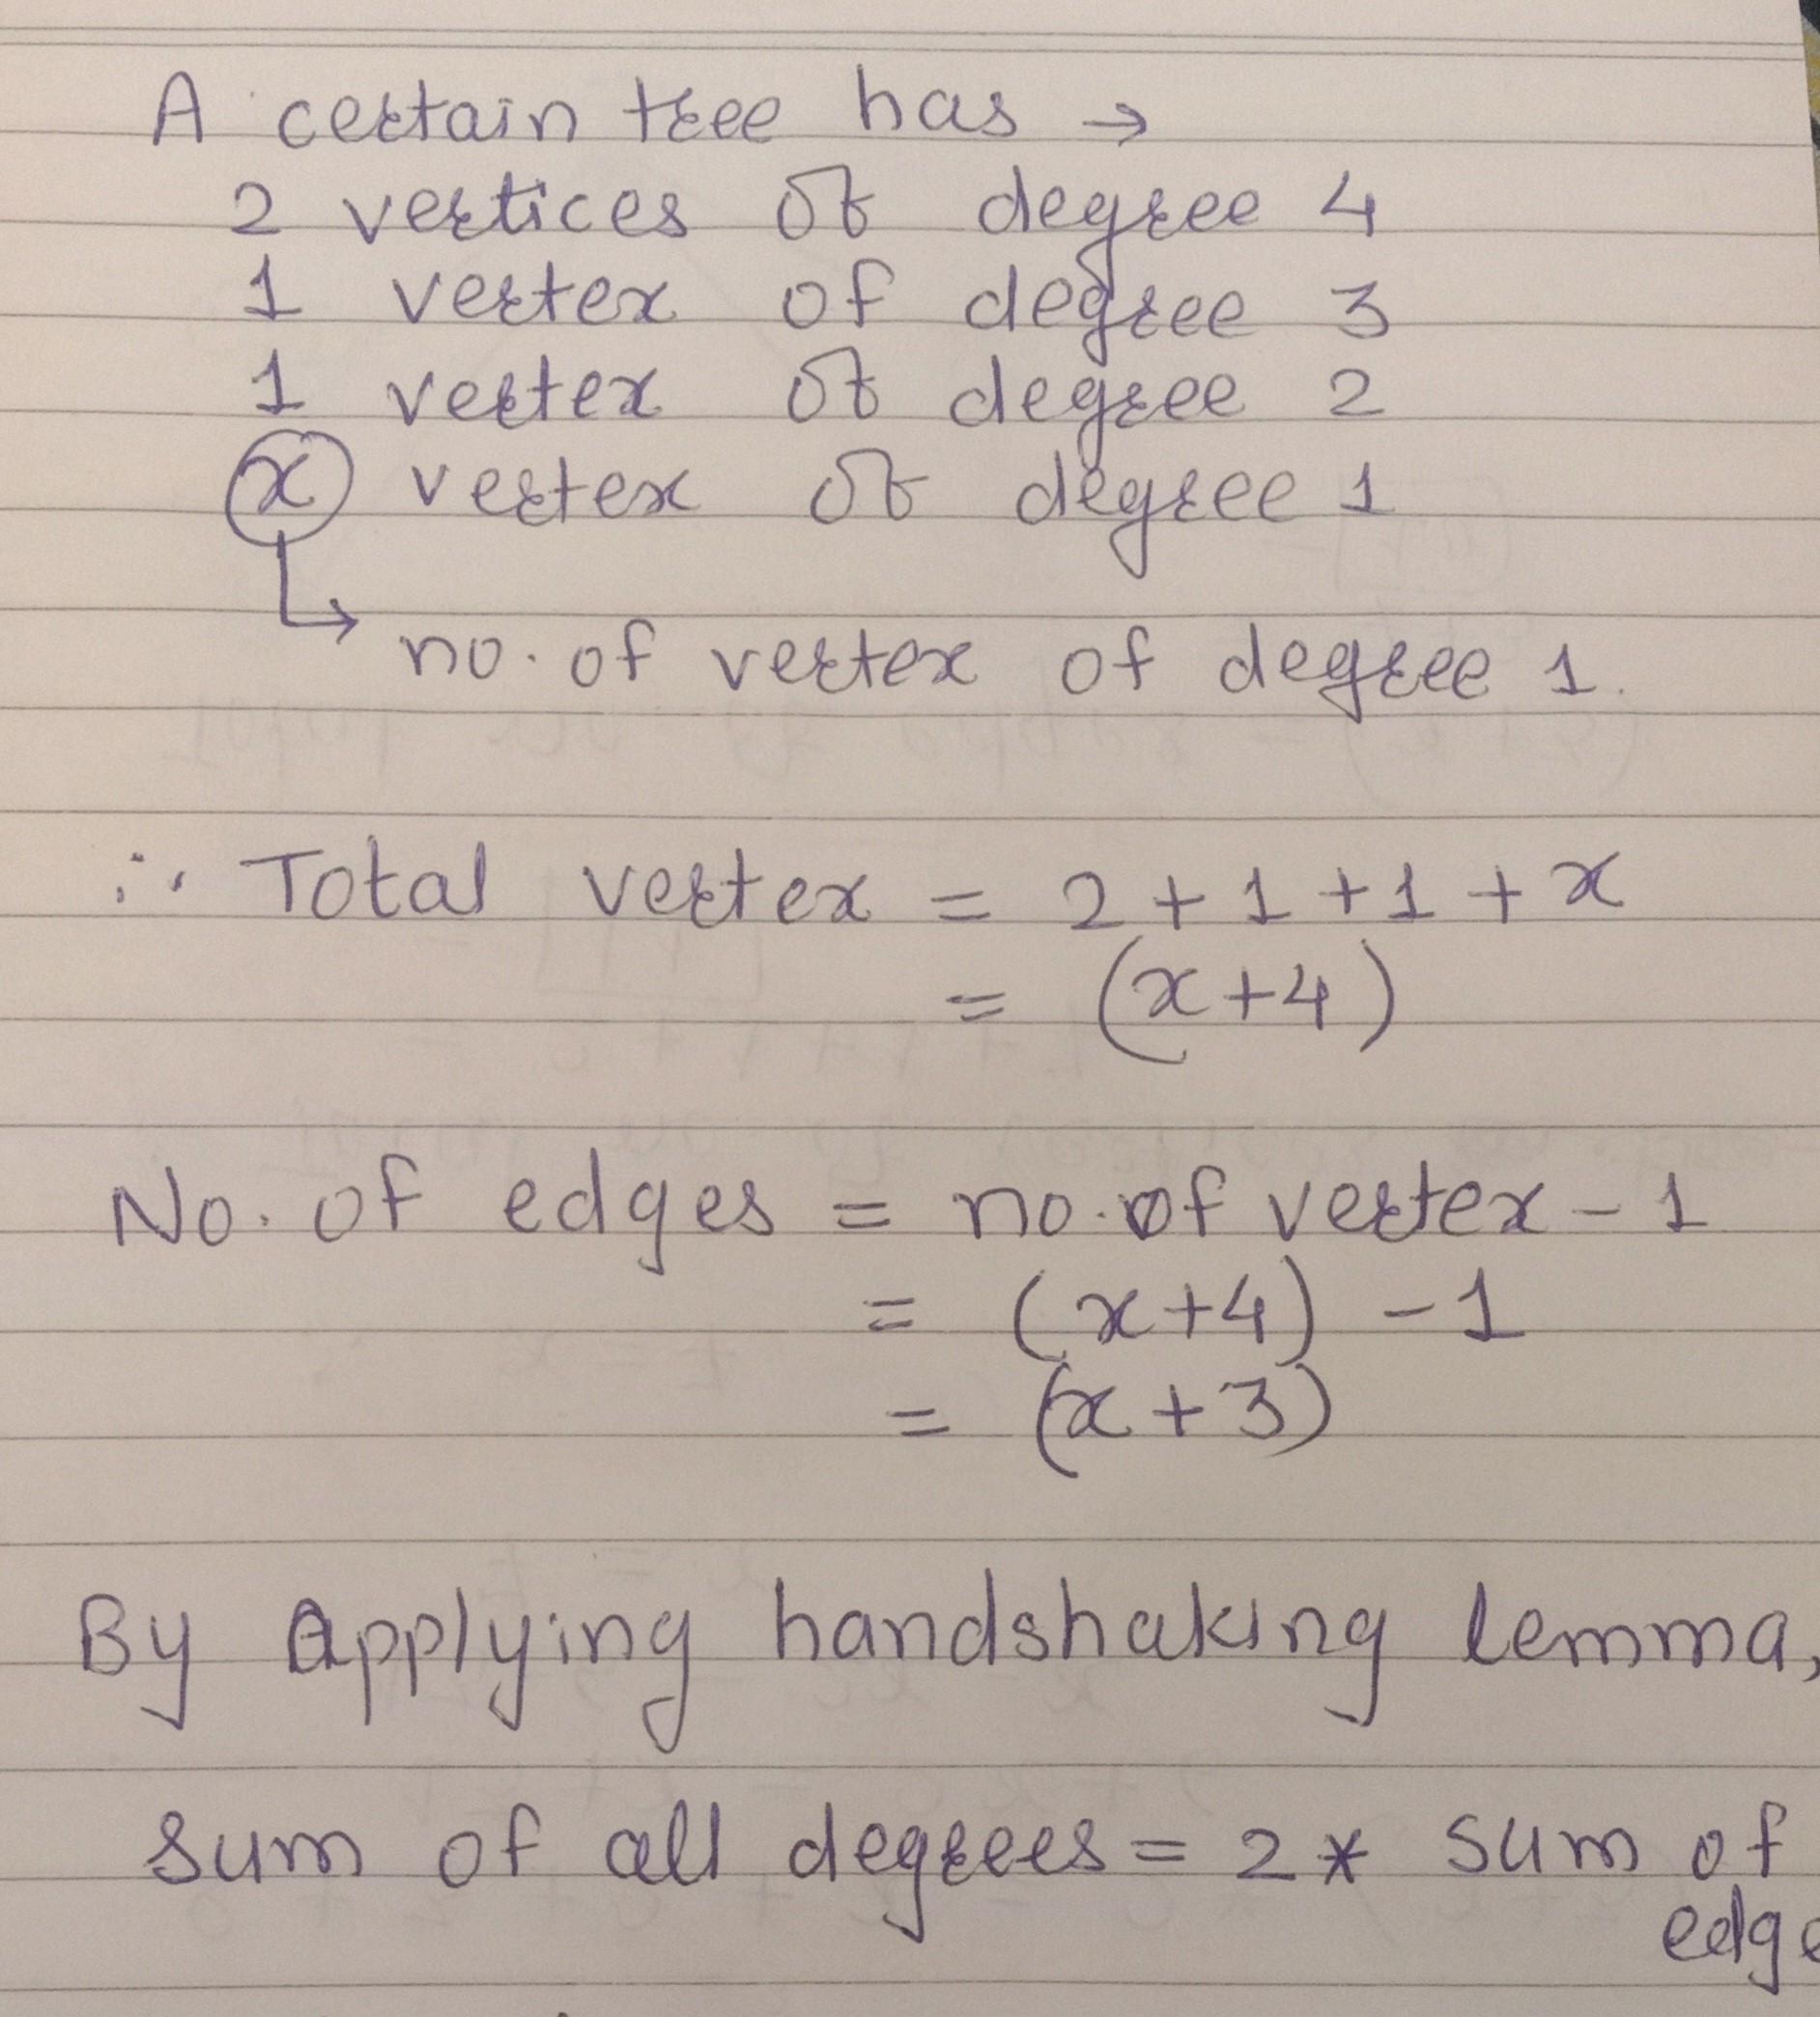 A certain tree has →
2 vertices of degree 4
1 vertex of degree 3
1 vertex of degree 2
x vertex of degree 1
↳ no. of vertex of degree 1.
∴ Total vertex = 2 + 1 + 1 + x
= (x+4)
No. of edges = no. of vertex - 1
= (x+4) - 1
= (x+3)
By Applying handshaking lemma,
sum of all degrees = 2 * sum of